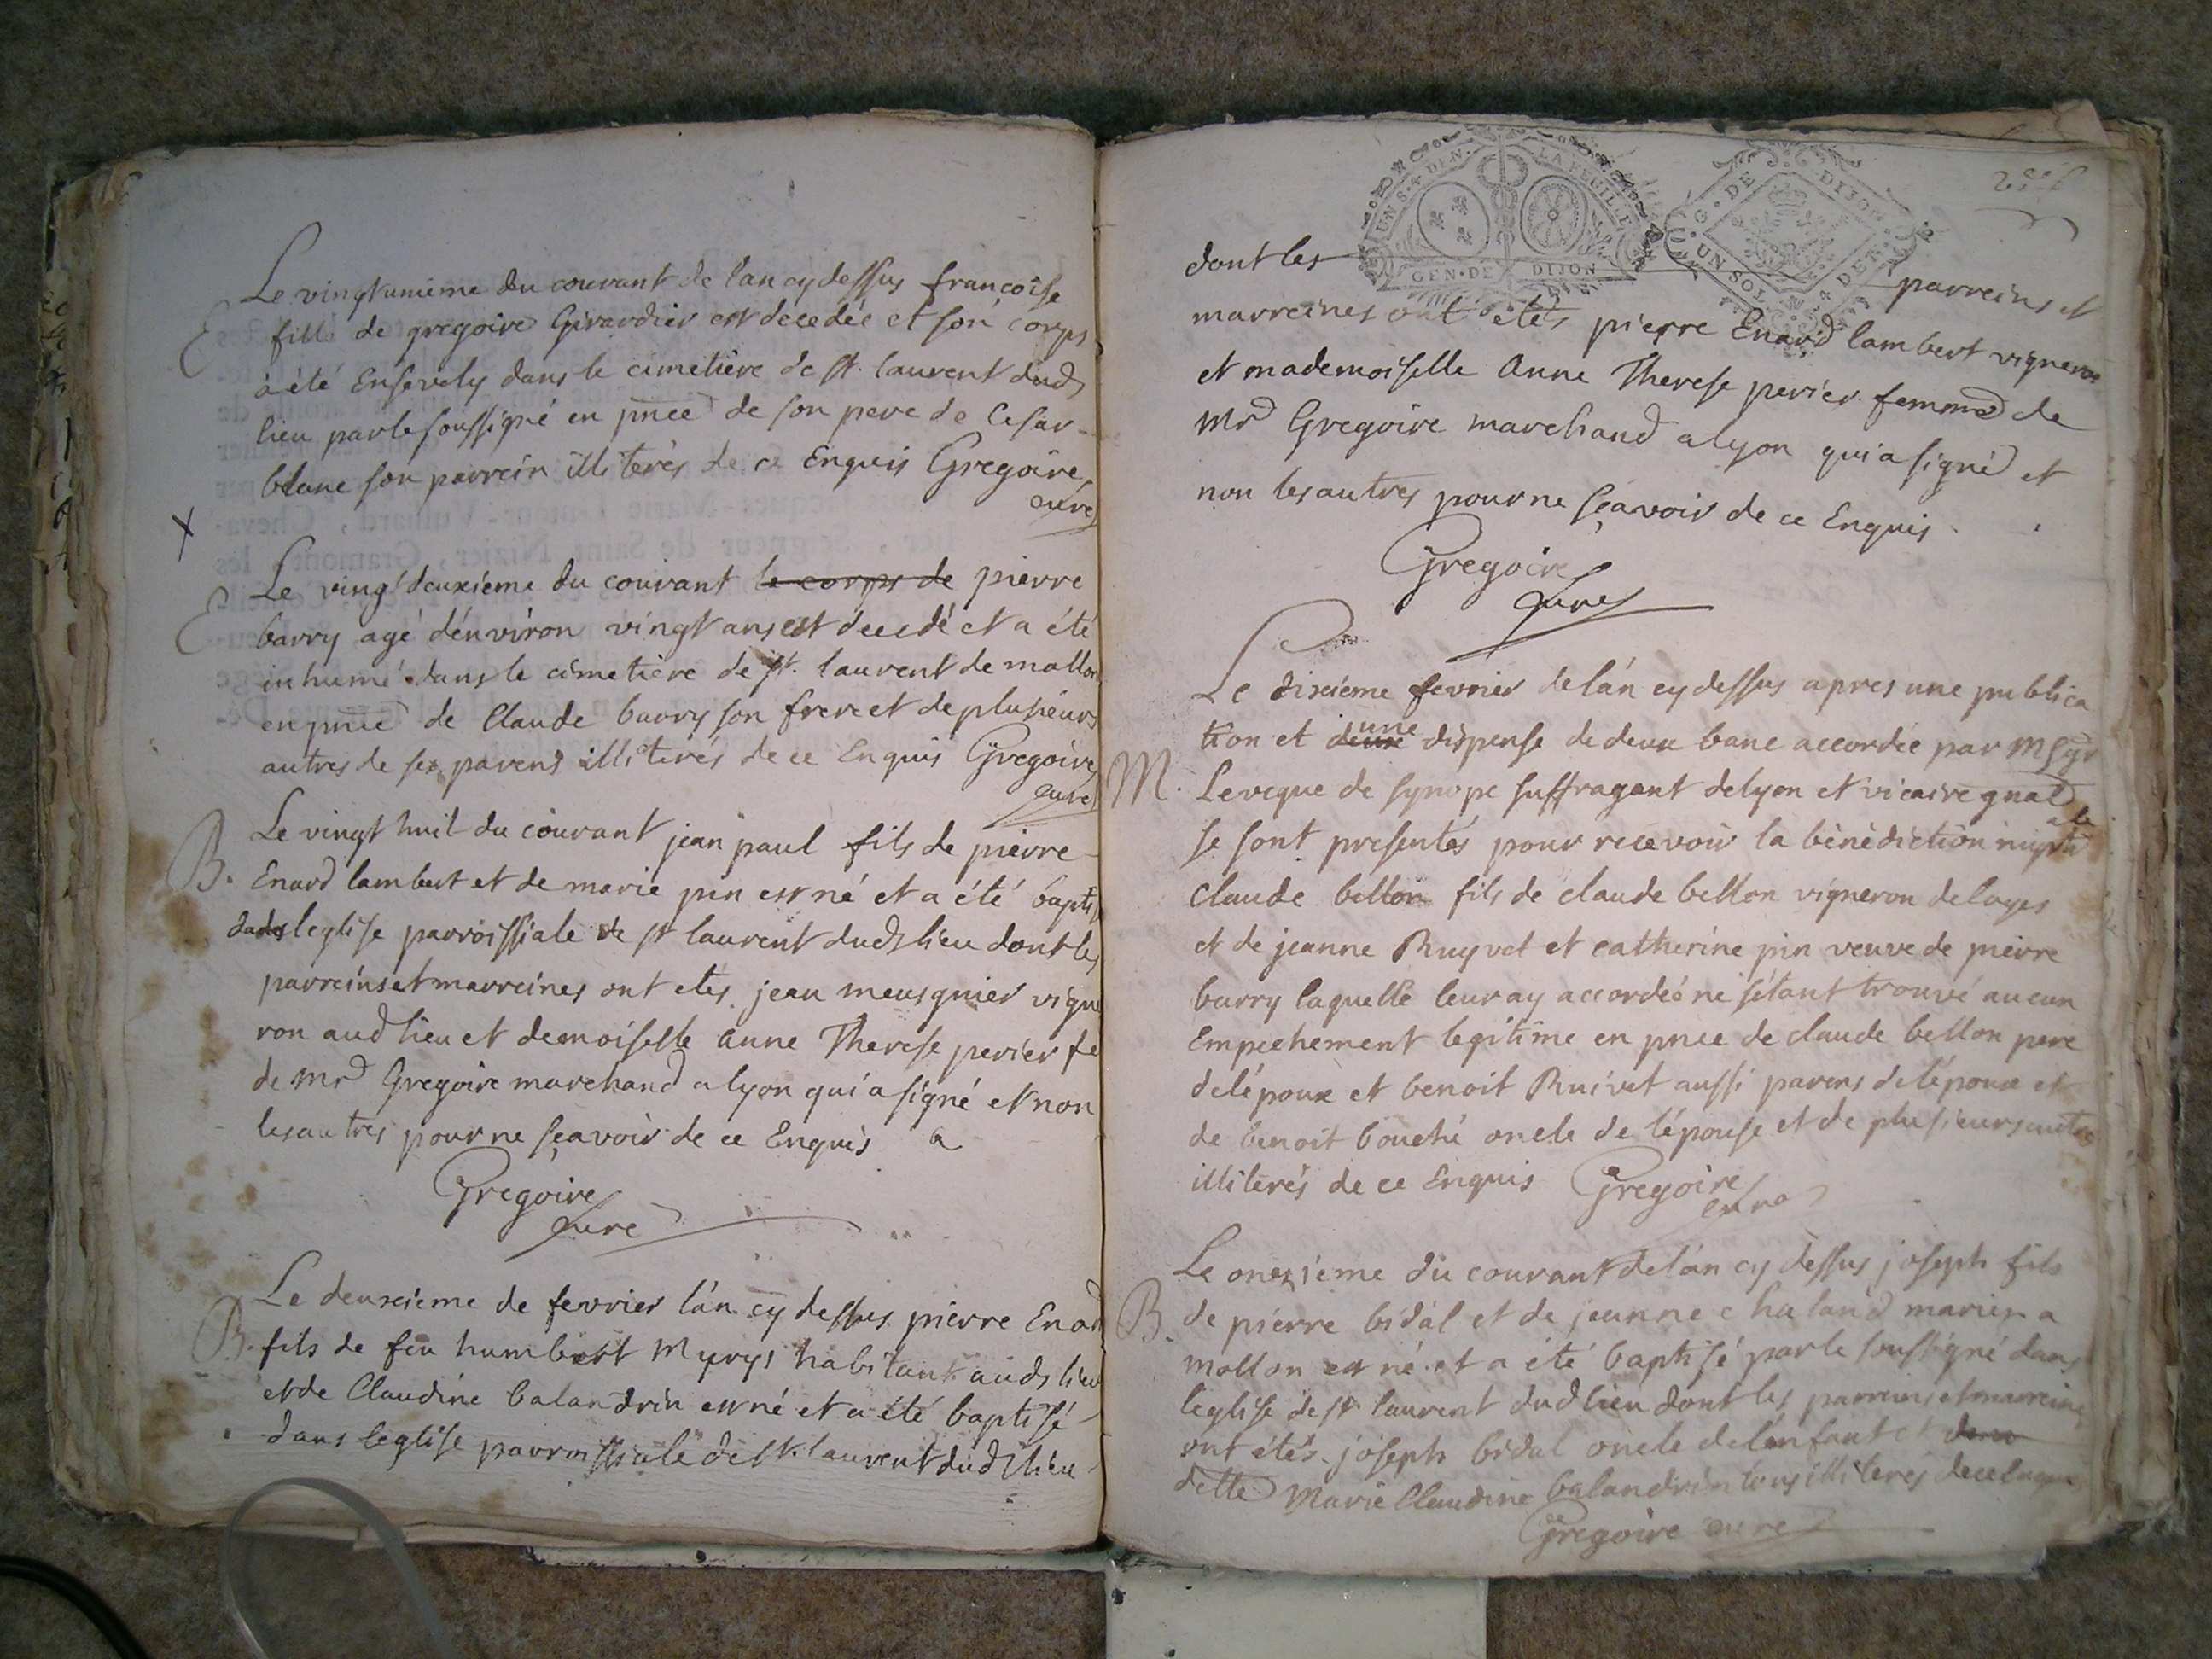 Le vingtunieme du courant de l'an cy dessus francoise
E fille de gregoire Girardier est decedée et son corps
à été Ensevely dans le cimetière de st. laurent dud
lieu par le soussigné en pnce de son pere de Cesar
blanc son parrein illiterés de ce Enquis Gregoire
curé
X
Le vingt deuxieme du courant le corps de pierre
E barry agé d'énviron vingt ans est decedé et a été
inhumé dans le cimetiere de st. laurent de mollon
en pnce de Claude barry son frere et de plusieurs
autres de ses parens illiterés de ce Enquis Gregoire
curé
Le vingt huit du courant jean paul fils de pierre
B. Enard lambert et de marie pin est né et a été baptis
dans leglise parroissiale de st laurent dud lieu dont les
parreins et marreines ont etes jean meusgnier vigne
ron aud lieu et demoiselle anne Therese perier fe
de mr Gregoire marchand a lyon qui a signé et non
les autres pour ne sçavoir de ce Enquis a
Gregoire
curé
Le deuxieme de fevrier l'an cy dessus pierre Enard
B. fils de feu humbert Myrys habitant auds lieu
et de Claudine balandrin est né et a été baptisé
dans leglise parroissiale de st. laurent dud lieu
UN S. 4 DEN. LA FEUILLE
GEN. DE DIJON
G. DE DIJON
UN SOL 4 DET.
dont les parreins et
marreines ont etés pierre Enard lambert vigneron
et mademoiselle Anne Therese perier femme de
Mr Gregoire marchand a lyon qui a signé et
non les autres pour ne sçavoir de ce Enquis
Gregoire
curé
Le dixieme fevrier de l'án cy dessus apres une publica
tion et une dispense de deux banc accordée par MSgr
M. Leveque de synope suffragant de lyon et vicaire gnal
se sont presentés pour recevoir la bénédiction nuptiale
Claude bellon fils de claude bellon vigneron de loyes
et de jeanne Ruyvet et catherine pin veuve de pierre
barry laquelle leur ay accordeé ne s'étant trouvé aucun
Empechement legitime en pnce de claude bellon pere
de l'époux et benoit Ruivet aussi parens de l'époux et
de benoit bouché oncle de l'épouse et de plusieurs autres
illiterés de ce Enquis Gregoire
curé
Le onzieme du courant de l'an cy dessus joseph fils
B. de pierre bidal et de jeanne chaland mariés a
mollon est né et a été baptisé par le soussigné dans
leglise de st laurent dud lieu dont les parreins et marreines
ont étés joseph bidal oncle de l'énfant et
delle Marie Claudine balandrin tous illiterés de ce Enquis
Gregoire curé